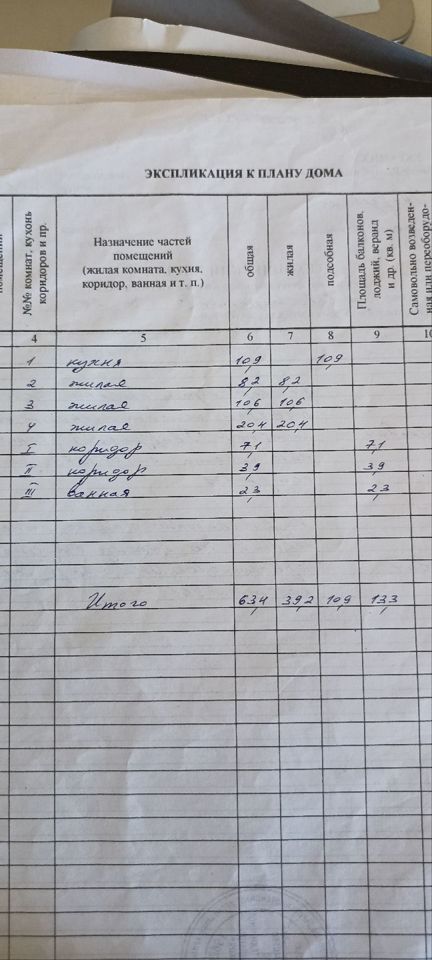 ЭКСПЛИКАЦИЯ К ПЛАНУ ДОМА
помещений
№№ комнат, кухонь коридоров и пр.
Назначение частей
помещений
(жилая комната, кухня,
коридор, ванная и т. п.)
общая
жилая
подсобная
Площадь балконов, лоджий, веранд и др. (кв. м)
Самовольно возведен-
ная или переоборудо-
4 5 6 7 8 9 10
1 кухня 10,9 10,9
2 жилая 8,2 8,2
3 жилая 10,6 10,6
4 жилая 20,4 20,4
I коридор 7,1 7,1
II коридор 3,9 3,9
III ванная 2,3 2,3
Итого 63,4 39,2 10,9 13,3